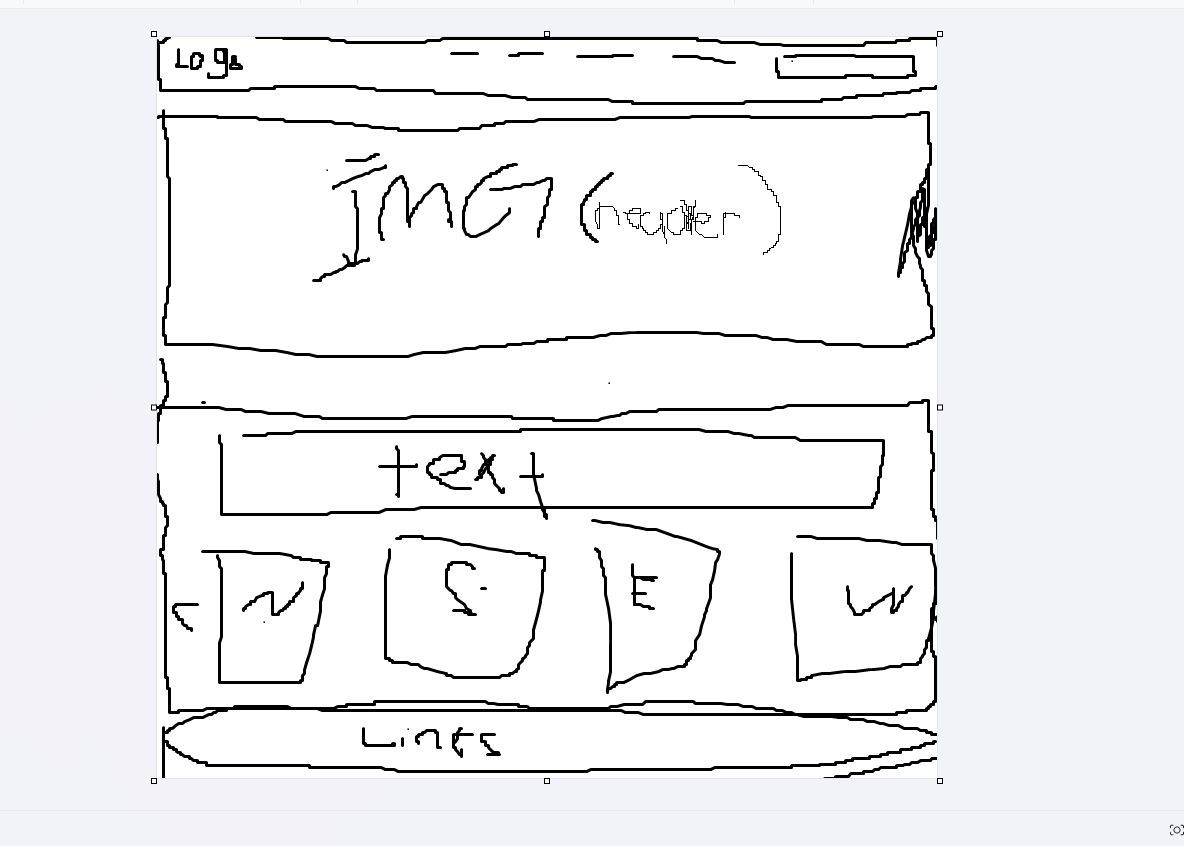 Logo
IMG (header)
text
N S E W
Lines